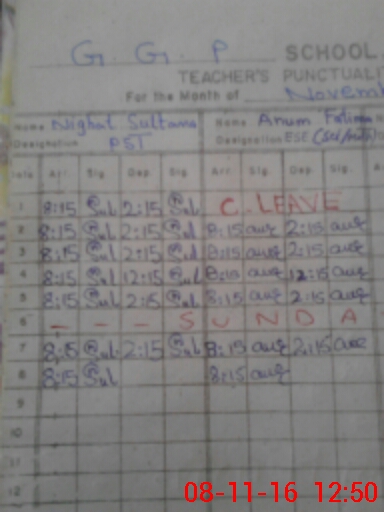 G. G. P SCHOOL
TEACHER'S PUNCTUALI
For the Month of Novemb
Name Nighat Sultana Name Anum Fatima
Designation PST Designation ESE (Sci/Math)
Date Arr. Sig. Dep. Sig. Arr. Sig. Dep. Sig. A
1 8:15 Sul 2:15 Sul C. LEAVE
2 8:15 Sul 2:15 Sul 8:15 auf 2:15 auf
3 8:15 Sul 2:15 Sul 8:15 auf 2:15 auf
4 8:15 Sul 12:15 Sul 8:15 auf 12:15 auf
5 8:15 Sul 2:15 Sul 8:15 auf 2:15 auf
6 - - - S U N D A
7 8:15 Sul 2:15 Sul 8:15 auf 2:15 auf
8 8:15 Sul 8:15 auf
9
10
11
12
08-11-16 12:50